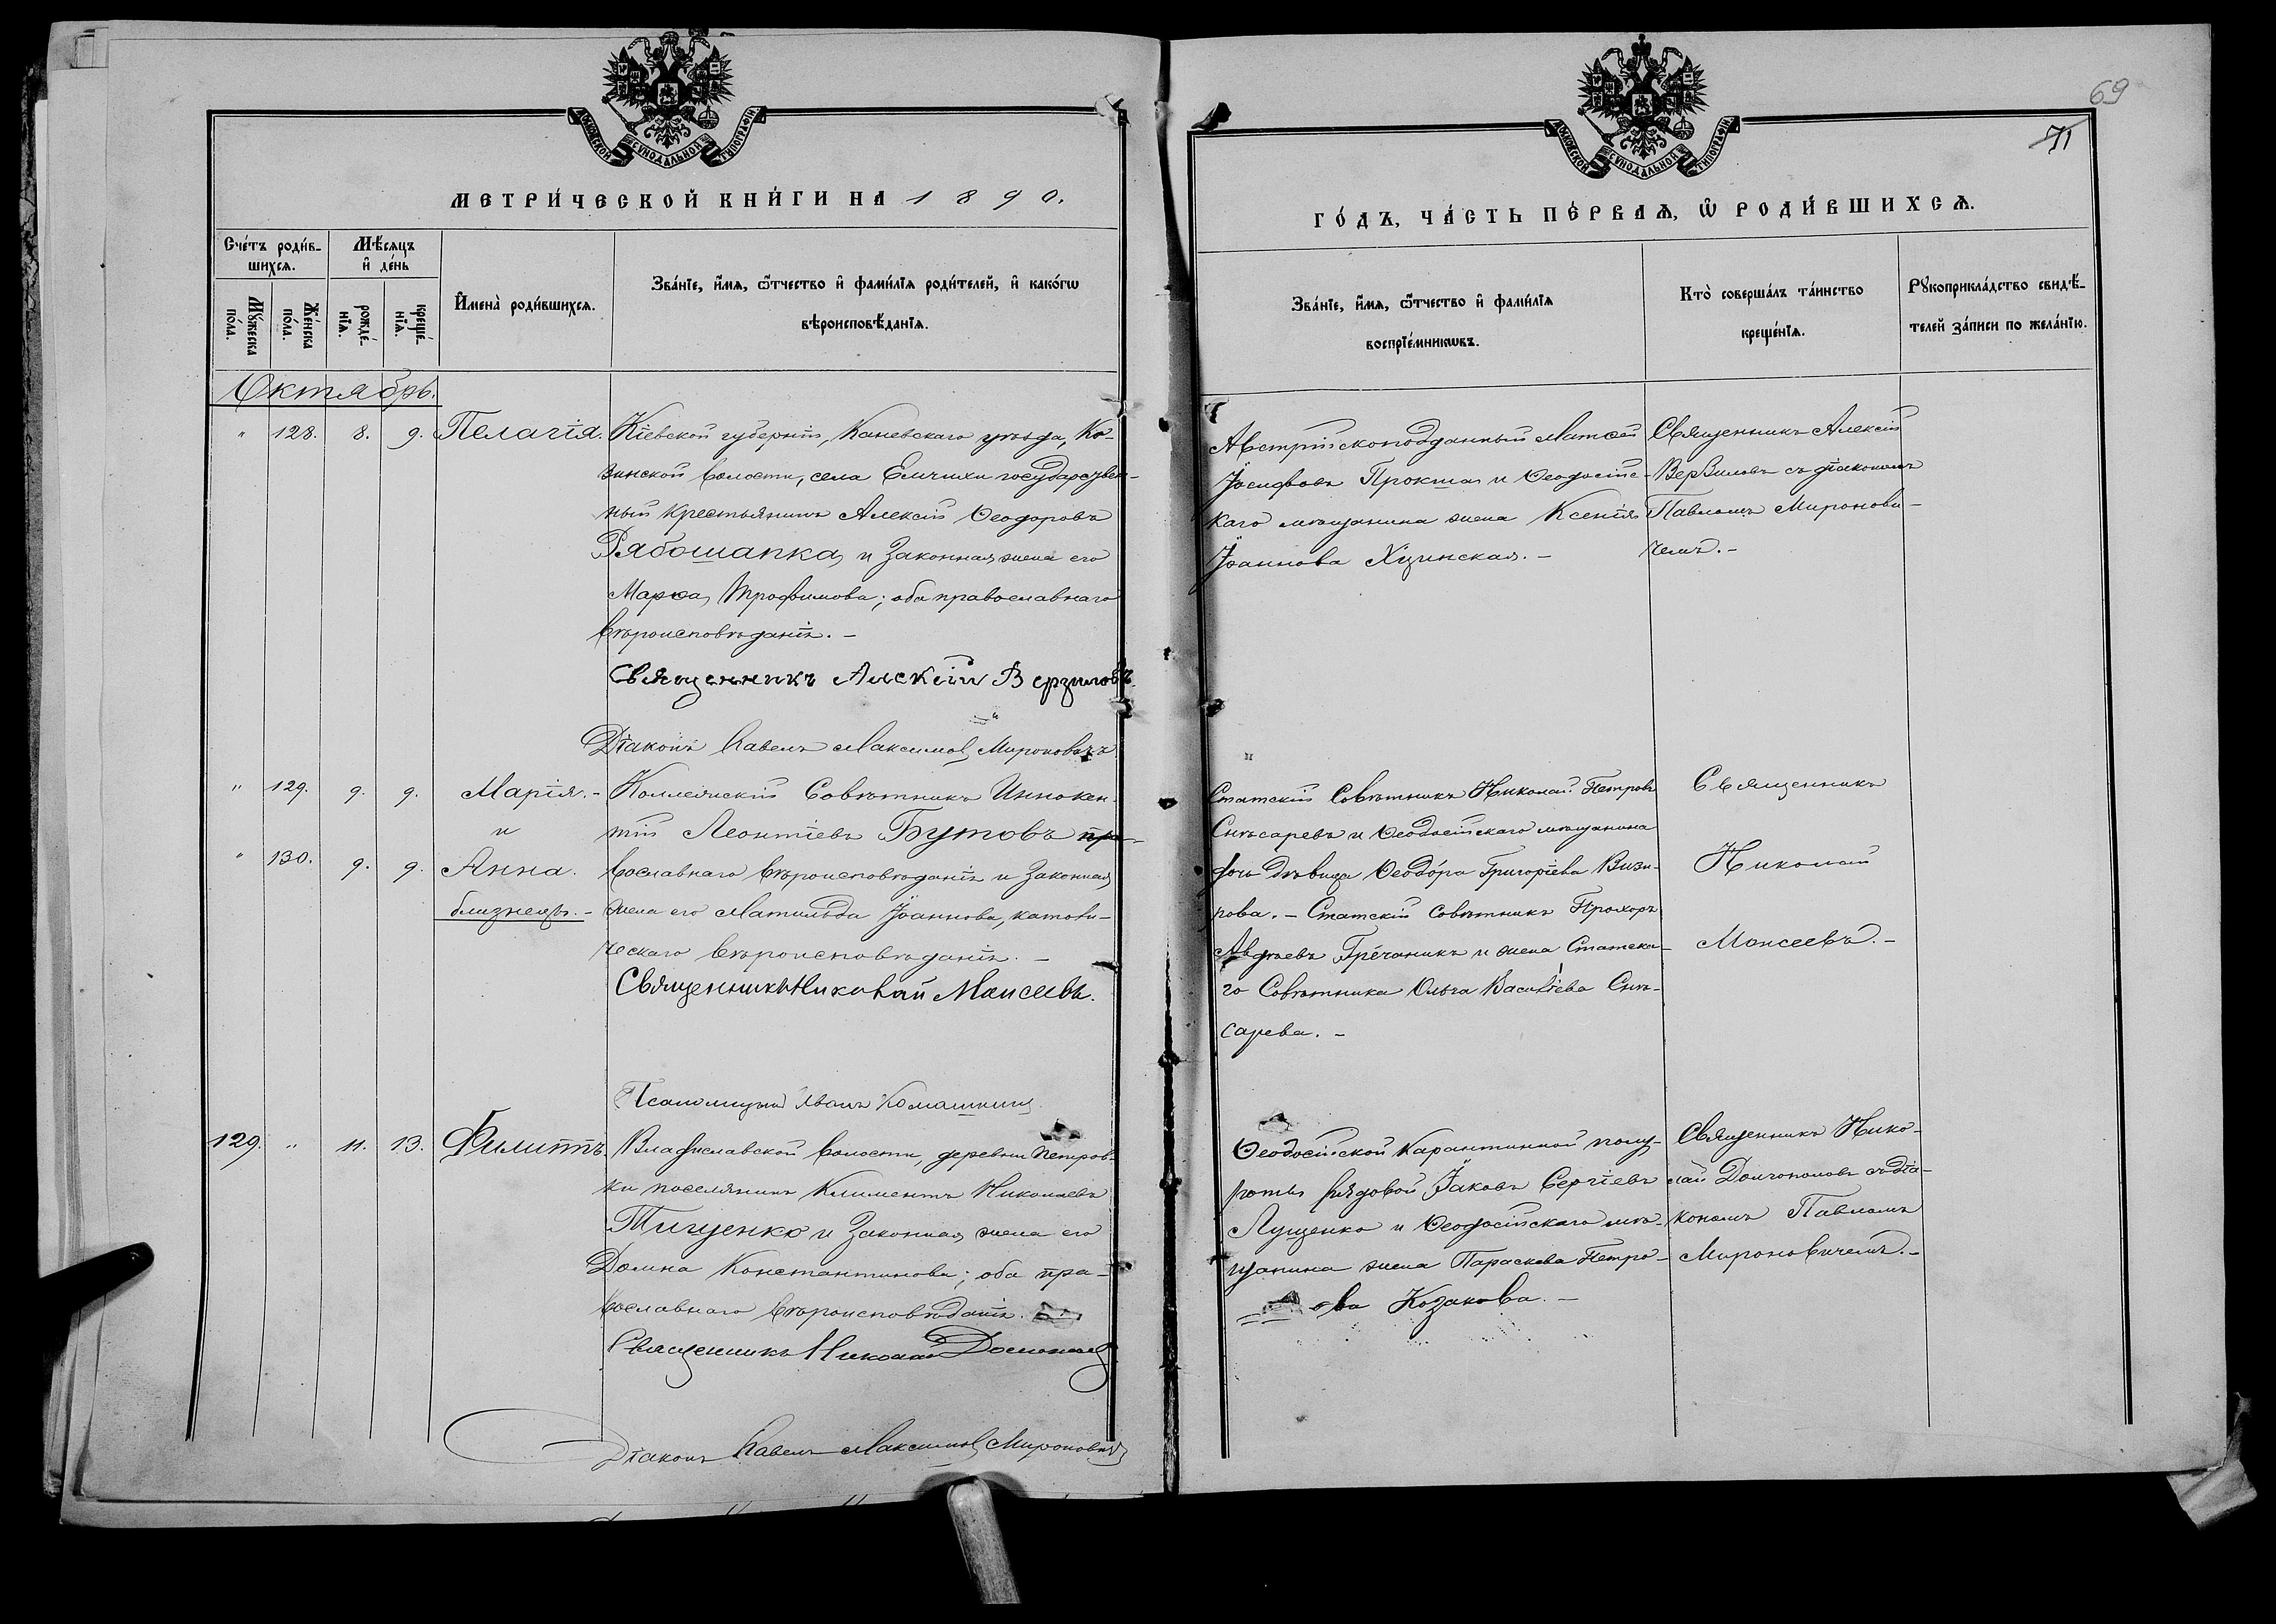 69
71
МОСКОВСКОЙ СѴНОДАЛЬНОЙ ТИПОГРАФІИ
МЕТРИ́ЧЕСКОЙ КНИ́ГИ НА 1890.
Сче́тъ роди́в-
шихсѧ.
Мѣ́сѧцъ
и҆ де́нь
Мꙋ́жеска
по́ла.
Же́нска
по́ла.
рожде́-
нїѧ.
креще́-
нїѧ.
И҆мена̀ роди́вшихсѧ.
Зва́нїе, и҆́мѧ, ѻ҆́тчество и҆ фами́лїѧ роди́телей, и҆ како́гѡ
вѣроисповѣ́данїѧ.
Октябрь.
" 128. 8. 9. Пелагія.
Кіевской губерніи, Каневскаго уѣзда, Ко-
зинской волости, села Емчихи государствен-
ный крестьянинъ Алексій Ѳеодоровъ
Рябошапка и законная жена его
Марѳа Трофимова; оба православнаго
вѣроисповѣданія. -
Священникъ Алексій Верзиловъ
Діаконъ Павелъ Максимовъ Мироновичъ
" 129. 9. 9. Марія. -
и
" 130. 9. 9. Анна.
близнецы. -
Коллежскій Совѣтникъ Иннокен-
тій Леонтіевъ Бутовъ пра-
вославнаго вѣроисповѣданія и законная
жена его Матильда Іоаннова, католи-
ческаго вѣроисповѣданія. -
Священникъ Николай Моисеевъ.
Псаломщикъ Иванъ Комашкинъ
129. " 11. 13. Филиппъ.
Владиславской волости, деревни Петров-
ки поселянинъ Климентъ Николаевъ
Тищенко и законная жена его
Домна Константинова; оба пра-
вославнаго вѣроисповѣданія.
Священникъ Николай Долгополовъ
Діаконъ Павелъ Максимовъ Мироновичъ
МОСКОВСКОЙ СѴНОДАЛЬНОЙ ТИПОГРАФІИ
ГО́ДЪ, ЧА́СТЬ ПЕ́РВАѦ, Ѡ҆ РОДИ́ВШИХСѦ.
Зва́нїе, и҆́мѧ, ѻ҆́тчество и҆ фами́лїѧ
воспрїе́мникѡвъ.
Кто̀ соверша́лъ та́инство
креще́нїѧ.
Рꙋкоприкла́дство свидѣ́-
телей за́писи по жела́нїю.
Австрійскоподданный Матѳей
Іосифовъ Прокша и Ѳеодосійс-
каго мѣщанина жена Ксенія
Іоаннова Хицинская. -
Священникъ Алексій
Верзиловъ съ діакономъ
Павломъ Миронови-
чемъ. -
Статскій Совѣтникъ Николай Петровъ
Снѣсаревъ и Ѳеодосійскаго мѣщанина
дочь дѣвица Ѳеодора Григоріева Визи-
рова. - Статскій Совѣтникъ Прохоръ
Авдѣевъ Гречаникъ и жена Статска-
го Совѣтника Ольга Василіева Снѣ-
сарева. -
Священникъ
Николай
Моисеевъ. -
Ѳеодосійской Карантинной полу-
роты рядовой Іаковъ Сергіевъ
Лущенко и Ѳеодосійскаго мѣ-
щанина жена Параскева Петро-
ва Козакова. -
Священникъ Нико-
лай Долгополовъ съ діа-
кономъ Павломъ
Мироновичемъ. -